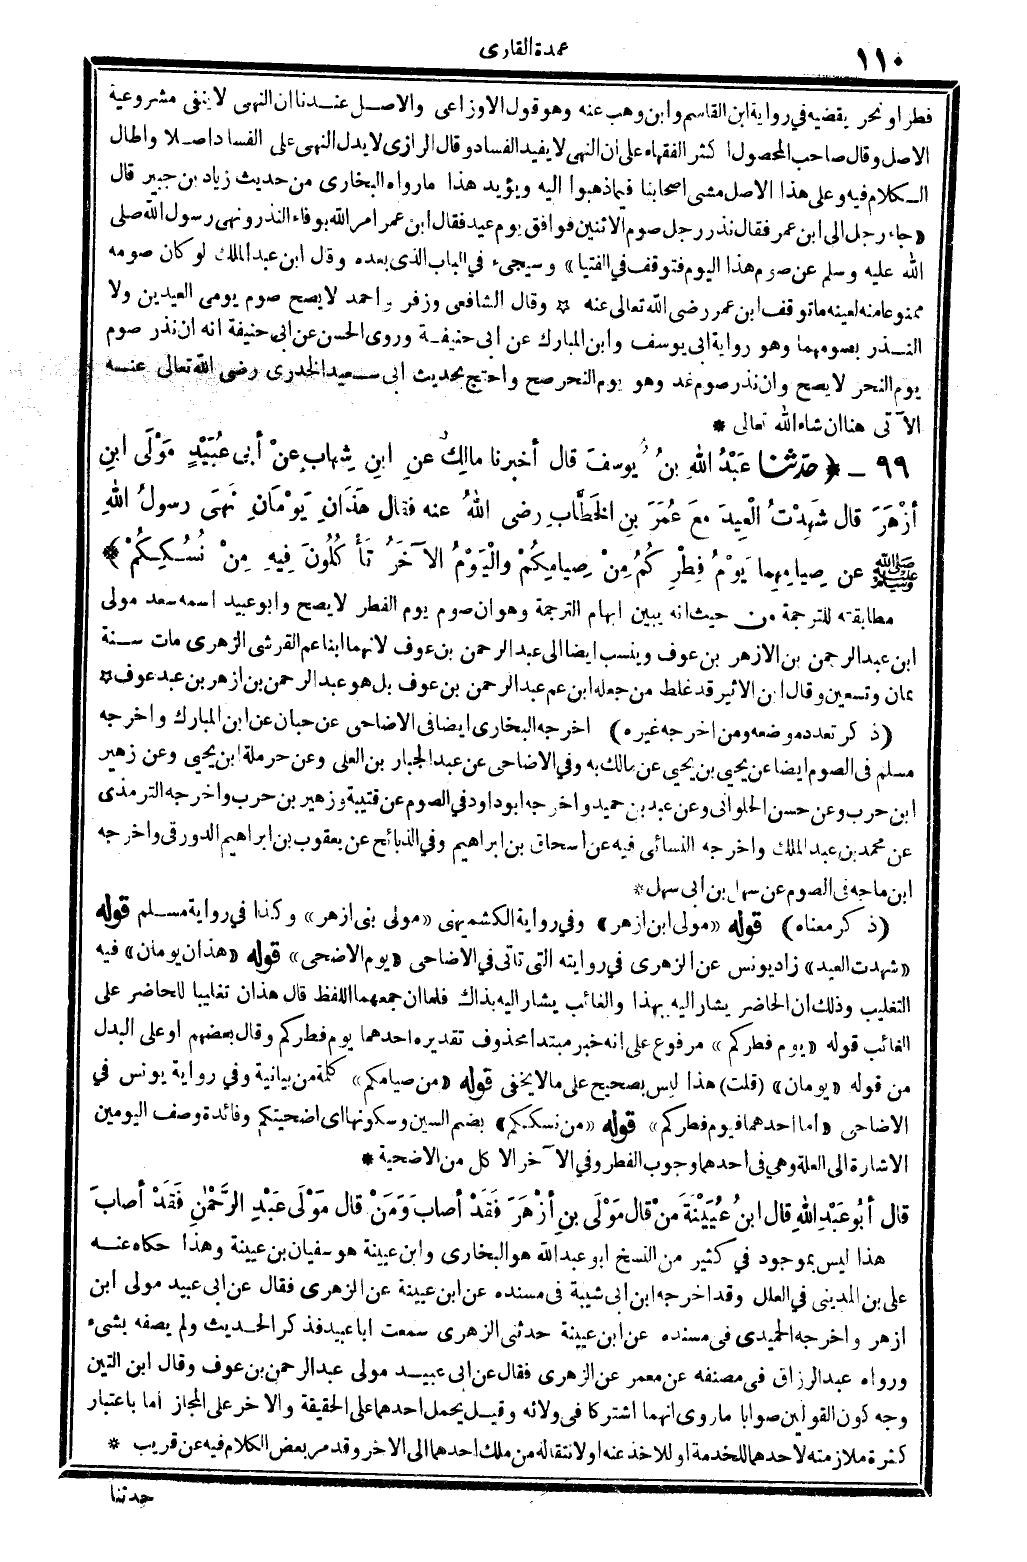 ١١٠
عمدة القارى
فطر او نحر يقضيه في رواية ابن القاسم وابن وهب عنه وهو قول الاوزاعى والاصل عندنا ان النهى لا ينفى مشروعية
الاصل وقال صاحب المحصول اكثر الفقهاء على ان النهى لا يفيد الفساد وقال الرازى لا يدل النهى على الفساد اصلا واطال
الكلام فيه وعلى هذا الاصل مشى اصحابنا فيما ذهبوا اليه ويؤيد هذا ما رواه البخارى من حديث زياد بن جبير قال
«جاء رجل الى ابن عمر فقال نذر رجل صوم الاثنين فوافق يوم عيد فقال ابن عمر امر الله بوفاء النذر ونهى رسول الله صلى
الله عليه وسلم عن صوم هذا اليوم فتوقف في الفتيا» وسيجىء في الباب الذى بعده وقال ابن عبد الملك لو كان صومه
ممنوعا منه لعينه ما توقف ابن عمر رضى الله تعالى عنه ☆ وقال الشافعى وزفر واحمد لا يصح صوم يومى العيدين ولا
النذر بصومهما وهو رواية ابى يوسف وابن المبارك عن ابى حنيفة وروى الحسن عن ابى حنيفة انه ان نذر صوم
يوم النحر لا يصح وان نذر صوم غد وهو يوم النحر صح واحتج بحديث ابى سعيد الخدرى رضى الله تعالى عنه
الآتى هنا ان شاء الله تعالى *
٩٩ ـ ﴿ حدثنا عَبْدُ اللهِ بنُ يُوسفَ قال أخبرنا مالِكٌ عنِ ابنِ شِهابٍ عنْ أبى عُبَيْدٍ مَوْلَى ابنِ
أزْهَرَ قال شَهِدْتُ الْعِيدَ معَ عُمَرَ بنِ الخَطَّابِ رضى اللهُ عنه فقال هَذَانِ يَوْمَانِ نَهَى رسولُ اللهِ
ﷺ عن صِيامِهِما يَوْمُ فِطْرِكُمْ مِنْ صِيامِكُمْ والْيَوْمُ الآخَرُ تَأْكُلُونَ فِيهِ مِنْ نُسُكِكُمْ ﴾ *
مطابقته للترجمة من حيث انه يبين ابهام الترجمة وهو ان صوم يوم الفطر لا يصح وابو عبيد اسمه سعد مولى
ابن عبد الرحمن بن الازهر بن عوف وينسب ايضا الى عبد الرحمن بن عوف لانهما ابنا عم القرشى الزهرى مات سنة
ثمان وتسعين وقال ابن الاثير قد غلط من جعله ابن عم عبد الرحمن بن عوف بل هو عبد الرحمن بن ازهر بن عبد عوف ☆
(ذكر تعدد موضعه ومن اخرجه غيره) اخرجه البخارى ايضا فى الاضاحى عن حبان عن ابن المبارك واخرجه
مسلم فى الصوم ايضا عن يحيى بن يحيى عن مالك به وفي الاضاحى عن عبد الجبار بن العلى وعن حرملة ابن يحيى وعن زهير
ابن حرب وعن حسن الحلوانى وعن عبد بن حميد واخرجه ابو داود في الصوم عن قتيبة وزهير بن حرب واخرجه الترمذى
عن محمد بن عبد الملك واخرجه النسائى فيه عن اسحاق بن ابراهيم وفي الذبائح عن يعقوب بن ابراهيم الدورقى واخرجه
ابن ماجه فى الصوم عن سهل بن ابى سهل *
(ذكر معناه) قوله «مولى ابن ازهر» وفي رواية الكشميهنى «مولى بنى ازهر» وكذا في رواية مسلم قوله
«شهدت العيد» زاد يونس عن الزهرى في روايته التى تاتى في الاضاحى «يوم الاضحى» قوله «هذان يومان» فيه
التغليب وذلك ان الحاضر يشار اليه بهذا والغائب يشار اليه بذاك فلما ان جمعهما اللفظ قال هذان تغليبا للحاضر على
الغائب قوله «يوم فطركم» مرفوع على انه خبر مبتدا محذوف تقديره احدهما يوم فطركم وقال بعضهم او على البدل
من قوله «يومان» (قلت) هذا ليس بصحيح على ما لا يخفى قوله «من صيامكم» كلمة من بيانية وفي رواية يونس في
الاضاحى «اما احدهما فيوم فطركم» قوله «من نسككم» بضم السين وسكونها اى اضحيتكم وفائدة وصف اليومين
الاشارة الى العلة وهي فى احدهما وجوب الفطر وفي الآخر الاكل من الاضحية *
قال أبُو عَبْدِ اللهِ قال ابنُ عُيَيْنَةَ مَنْ قال مَوْلَى بنِ أزْهَرَ فَقَدْ أصابَ وَمَنْ قال مَوْلَى عَبْدِ الرَّحْمٰنِ فَقَدْ أصابَ
هذا ليس بموجود في كثير من النسخ ابو عبد الله هو البخارى وابن عيينة هو سفيان بن عيينة وهذا حكاه عنه
على بن المدينى في العلل وقد اخرجه ابن ابى شيبة فى مسنده عن ابن عيينة عن الزهرى فقال عن ابى عبيد مولى ابن
ازهر واخرجه الحميدى فى مسنده عن ابن عيينة حدثنى الزهرى سمعت ابا عبيد فذكر الحديث ولم يصفه بشىء
ورواه عبد الرزاق فى مصنفه عن معمر عن الزهرى فقال عن ابى عبيد مولى عبد الرحمن بن عوف وقال ابن التين
وجه كون القولين صوابا ما روى انهما اشتركا فى ولائه وقيل يحمل احدهما على الحقيقة والاخر على المجاز اما باعتبار
كثرة ملازمته لاحدهما للخدمة او للاخذ عنه او لانتقاله من ملك احدهما الى الاخر وقد مر بعض الكلام فيه عن قريب *
حدثنا